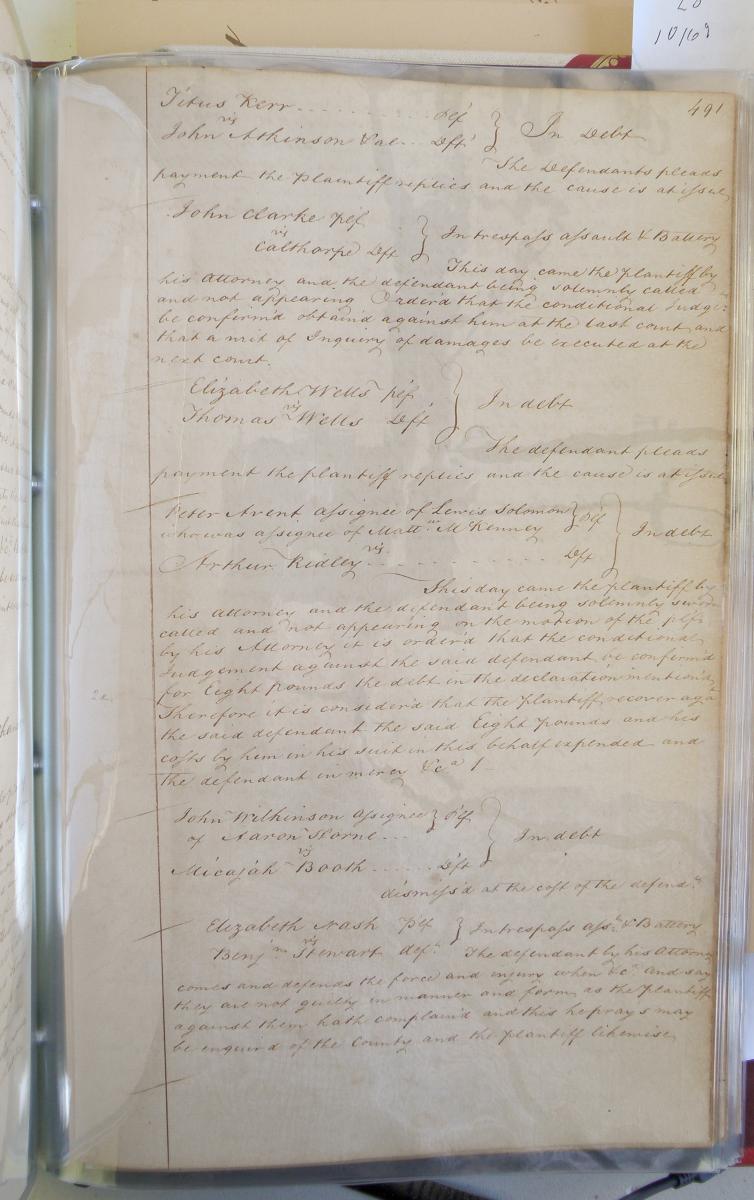 10/68
491
Titus Kerr . . . . . . . . . . . Plf } In Debt
vs
John Atkinson &al... Dfts
The Defendants pleads
payment the Plaintiff replies and the cause is at issue
John Clarke Plf } In trespass assault & Battery
vs
Calthorpe Dft
This day came the Plantiff by
his attorney and the defendant being solemnly called
and not appearing Orderd that the conditional Judgt
be confirm'd obtain'd against him at the last court and
that a writ of Inquiry of damages be executed at the
next court.
Elizabeth Wells plf } In debt
vs
Thomas Wells Dft
The defendant pleads
payment the plantiff replies and the cause is at issue
Peter Avent assignee of Lewis Solomon } Plf } In debt
who was assignee of Matt. McKenney
vs
Arthur Ridley . . . . . . . . . . Dft
This day came the plantiff by
his attorney and the defendant being solemnly
called and not appearing on the motion of the plfs
by his Attorney it is order'd that the conditional
Judgement against the said defendant be confirm'd
for Eight pounds the debt in the declaration mention'd
Therefore it is consider'd that the plantiff recover agat
the said defendant the said Eight pounds and his
costs by him in his suit in this behalf expended and
the defendant in mercy &ca
John Wilkinson assignee } Plf } In debt
of Aaron Horne...
vs
Micajah Booth . . . . . . Dft
dismiss'd at the cost of the defendt
Elizabeth Nash Plf } In trespass asst & Battery
vs
Benjn Stewart deft The defendant by his Attorney
comes and defends the force and injury when &c and say
they are not guilty in manner and form as the Plantiff
against them hath complain'd and this he prays may
be enquir'd of the County and the plantiff likewise